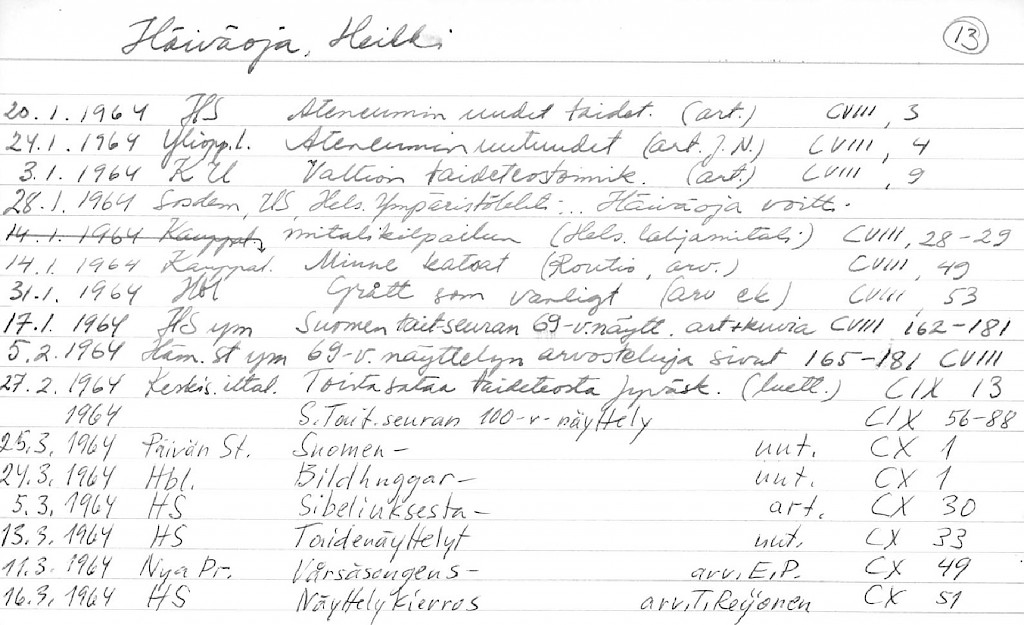 Häiväoja, Heikki 13
20.1.1964 HS Ateneumin uudet taidet. (art.) CVIII, 3
24.1.1964 Yliopp.l. Ateneumin uutuudet (art. J.N.) CVIII, 4
3.1.1964 KU Valtion taideteostoimik. (art.) CVIII, 9
28.1.1964 Sosdem, US, Hels. Ympäristölehti... Häiväoja voitti
14.1.1964 Kauppal. mitalikilpailun (Hels. lahjamitali) CVIII, 28-29
14.1.1964 Kauppal. Minne katoat (Routio, arv.) CVIII, 49
31.1.1964 Hbl Grått som vanligt (arv ek) CVIII, 53
17.1.1964 HS ym Suomen tait-seuran 69-v.näytt. art+kuvia CVIII 162-181
5.2.1964 Häm.st ym 69-v. näyttelyn arvosteluja sivut 165-181 CVIII
27.2.1964 Keskis.iltal. Toista sataa taideteosta Jyväsk. (luett.) CIX 13
1964 S.Tait.seuran 100-v-näyttely CIX 56-88
25.3.1964 Päivän St. Suomen- uut. CX 1
24.3.1964 Hbl. Bildhuggar- uut. CX 1
5.3.1964 HS Sibeliuksesta- art. CX 30
13.3.1964 HS Taidenäyttelyt uut. CX 33
11.3.1964 Nya Pr. Vårsäsongens- arv. E.P. CX 49
16.3.1964 HS Näyttelykierros arv. T. Reijonen CX 51